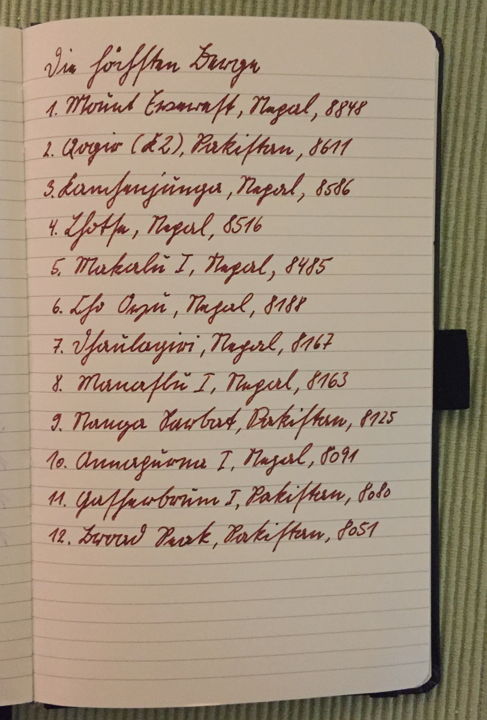 Die höchsten Berge
1. Mount Everest, Nepal, 8848
2. Qogir (K2), Pakistan, 8611
3. Kanchenjunga, Nepal, 8586
4. Lhotse, Nepal, 8516
5. Makalu I, Nepal, 8485
6. Cho Oyu, Nepal, 8188
7. Dhaulagiri, Nepal, 8167
8. Manaslu I, Nepal, 8163
9. Nanga Parbat, Pakistan, 8125
10. Annapurna I, Nepal, 8091
11. Gasherbrum I, Pakistan, 8080
12. Broad Peak, Pakistan, 8051